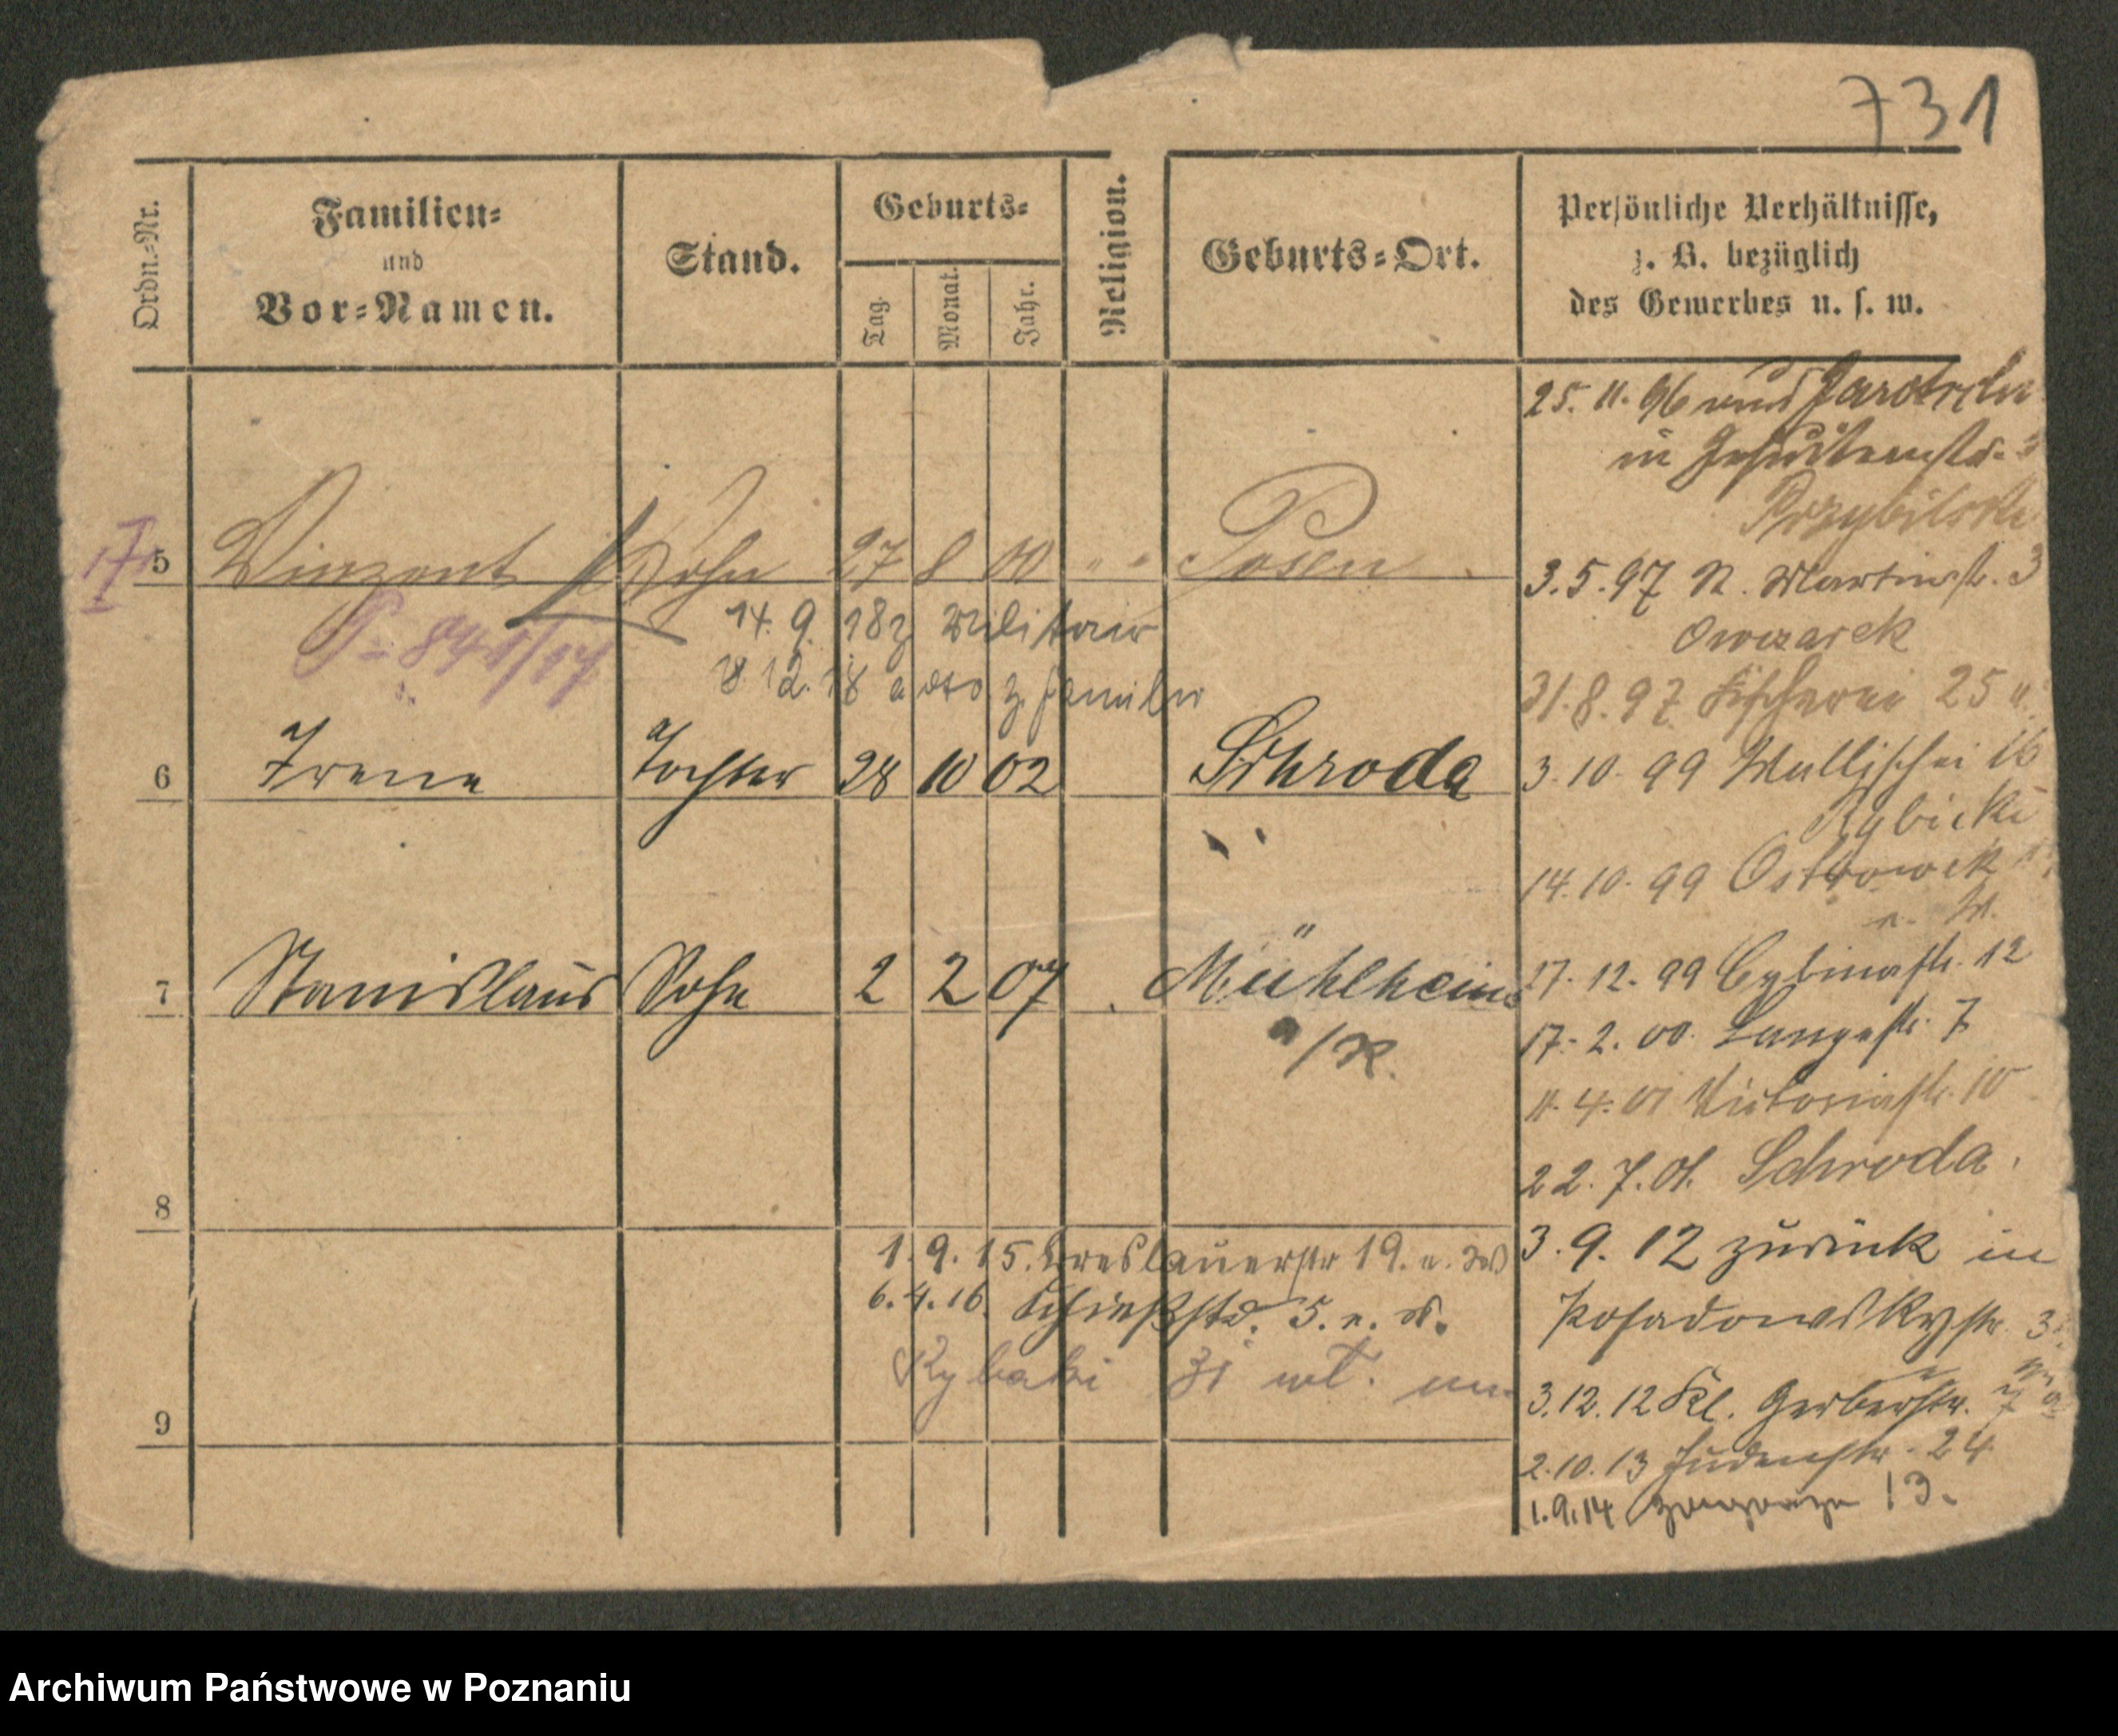 731
Ordn.-Nr.
Familien-
und
Vor-Namen.
Stand.
Geburts-
Tag.
Monat.
Jahr.
Religion.
Geburts-Ort.
Persönliche Verhältnisse,
z. B. bezüglich
des Gewerbes u. s. w.
25. 11. 96 Jarotschin
in Jesuitenstr.
Przybilski
5 Vinzent Sohn 27 8 00 " " Posen
14. 9. 18 z Militair
18 12. 18 z. Familie
6 Irene Tochter 28 10 02 Schroda
7 Stanislaus Sohn 2 2 07 Mühlheim
a/R.
8
1. 9. 15. Breslauerstr 19.
6. 4. 16. Schießstr. 5.
Rybaki 31
9
3. 5. 97 Martinstr. 3
Owczarek
31. 8. 97 Fischerei 25
3. 10. 99 Wallischei 16
Rybicki
14. 10. 99 Ostrowek
17. 12. 99 Cybinastr. 12
17. 2. 00. Langestr. 7
11. 4. 01 Victoriastr. 10
22. 7. 01. Schroda.
3. 9. 12 zurück in
Posadowskystr. 3
3. 12. 12 Kl. Gerberstr. 7
2. 10. 13 Judenstr. 24
1. 9. 14 13.
Archiwum Państwowe w Poznaniu